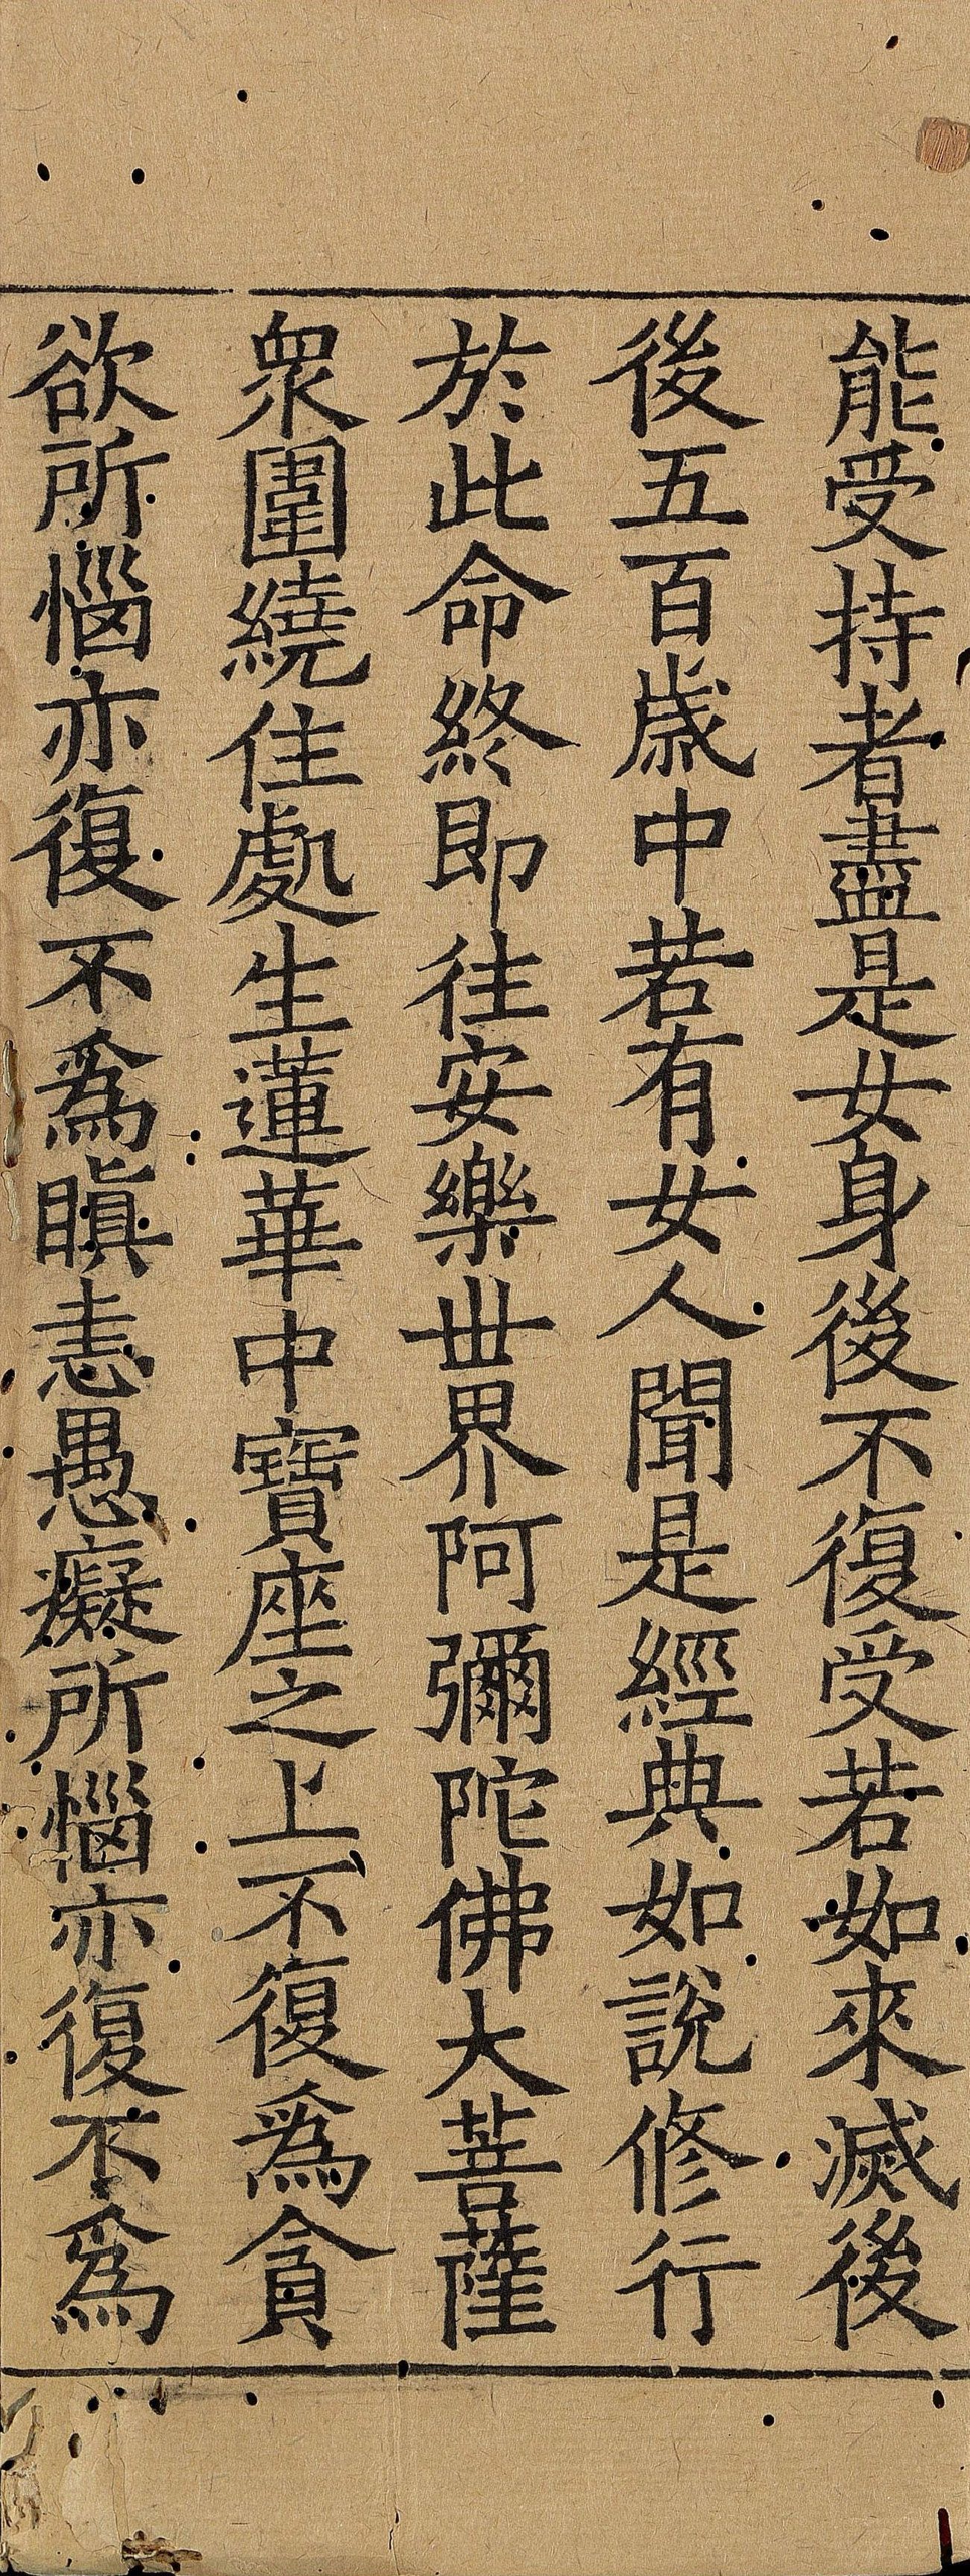 能受持者盡是女身後不復受若如來滅後
後五百歲中若有女人聞是經典如說修行
於此命終即往安樂世界阿彌陀佛大菩薩
衆圍繞住處生蓮華中寶座之上不復爲貪
欲所惱亦復不爲瞋恚愚癡所惱亦復不爲